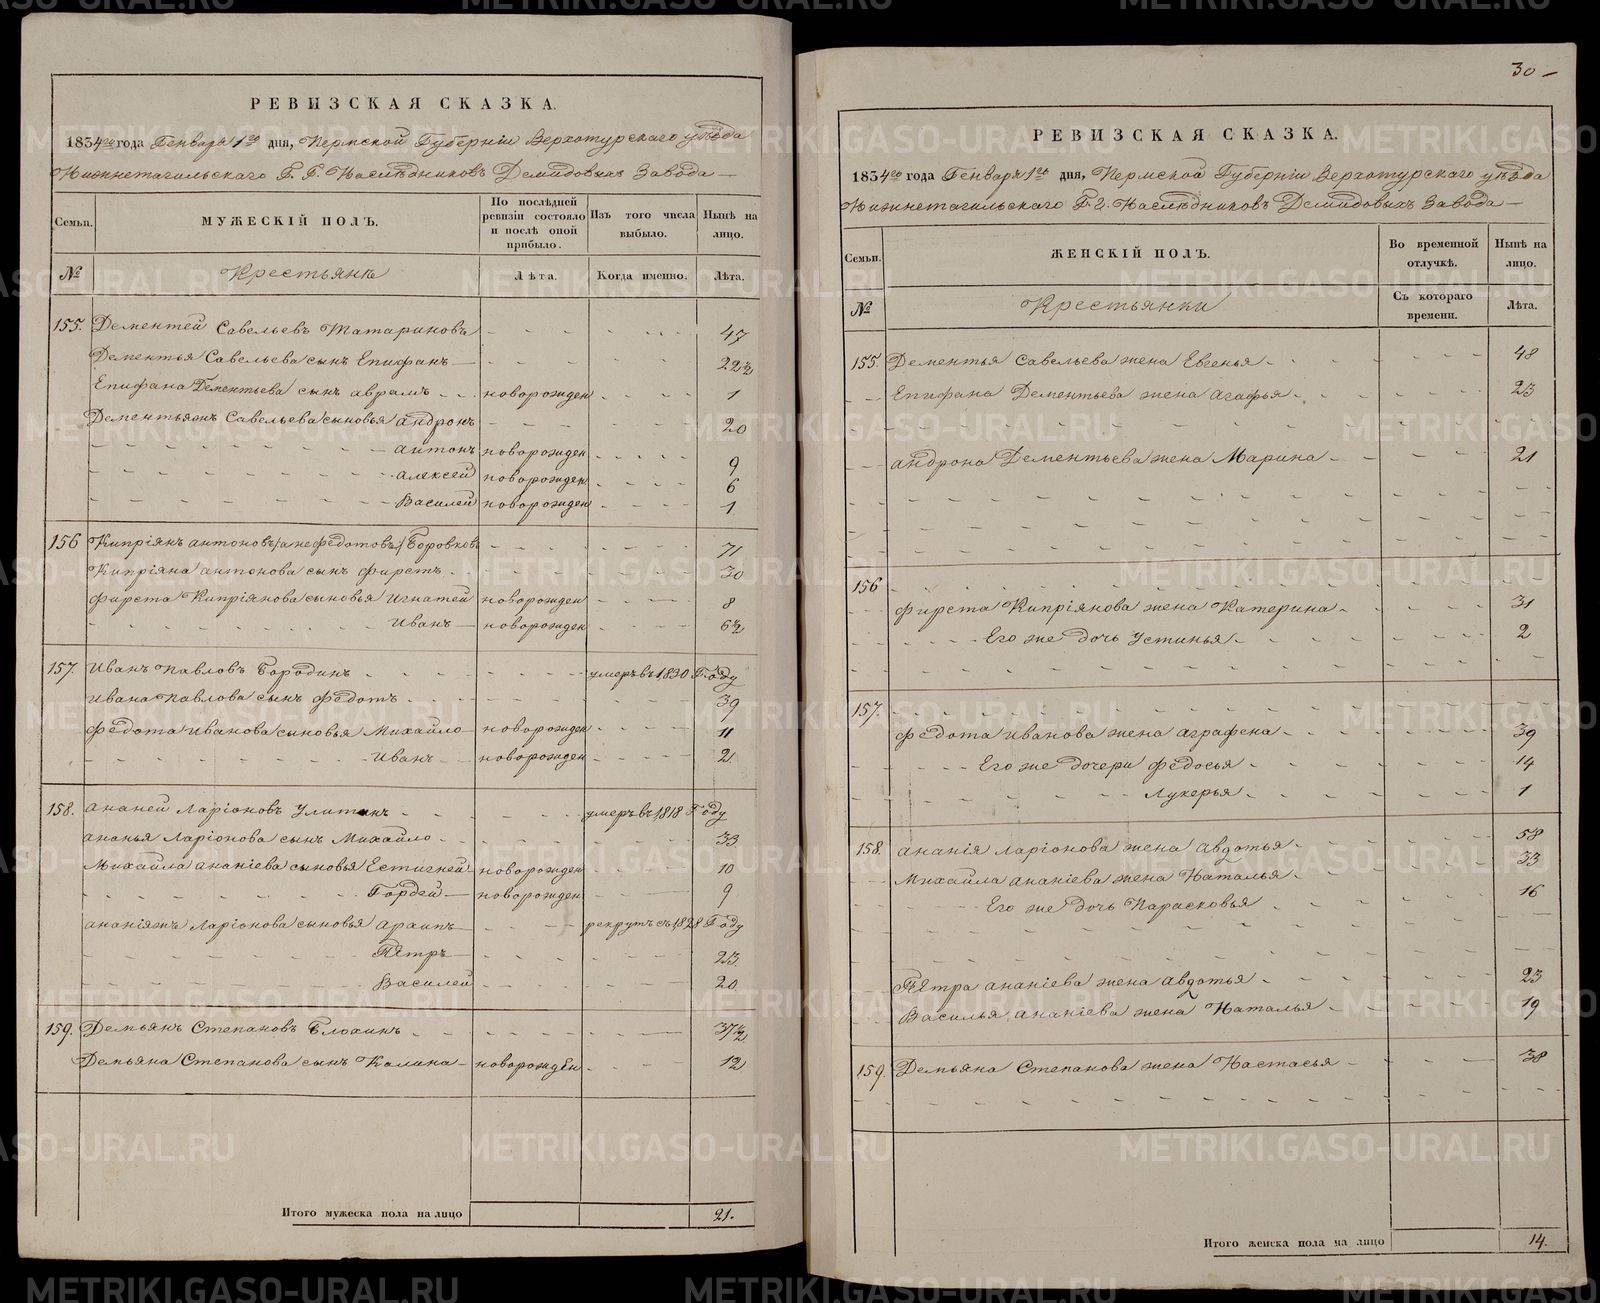 РЕВИЗСКАЯ СКАЗКА.
1834го года Генваря 1го дня, Пермской Губерніи Верхотурскаго уѣзда
Нижнетагильскаго Г. Г. Наслѣдниковъ Демидовыхъ Завода
Семьи. МУЖЕСКІЙ ПОЛЪ. По послѣдней ревизіи состояло и послѣ оной прибыло. Изъ того числа выбыло. Нынѣ на лицо.
№ Крестьяне Лѣта. Когда именно. Лѣта.
155. Дементей Савельевъ Татариновъ 47
Дементья Савельева сынъ Епифанъ 22½
Епифана Дементьева сынъ Аврамъ новорожден 1
Дементьяжъ Савельева сыновья Андронъ 20
Антонъ новорожден 9
Алексей новорожден 6
Василей новорожден 1
156 Кипріянъ Антоновъ /а не Федотовъ/ Боровковъ 71
Кипріяна Антонова сынъ Фирстъ 30
Фирста Кипріянова сыновья Игнатей новорожден 8
Иванъ новорожден 6½
157. Иванъ Павловъ Бородинъ умеръ въ 1830 Году
Ивана Павлова сынъ Федотъ 39
Федота Иванова сыновья Михайло новорожден 11
Иванъ новорожден 2
158. Ананей Ларіоновъ Улитинъ умеръ въ 1818 Году
Ананья Ларіонова сынъ Михайло 33
Михайла Ананіева сыновья Естигней новорожден 10
Гордей новорожден 9
Ананіяжъ Ларіонова сыновья Арапъ рекрутъ съ 1828 Году
Пётръ 23
Василей 20
159. Демьянъ Степановъ Блохинъ 37½
Демьяна Степанова сынъ Калина новорожден 12
Итого мужеска пола на лицо 21.
30
РЕВИЗСКАЯ СКАЗКА.
1834го года Генваря 1го дня, Пермской Губерніи Верхотурскаго уѣзда
Нижнетагильскаго Г. Г. Наслѣдниковъ Демидовыхъ Завода
Семьи. ЖЕНСКІЙ ПОЛЪ. Во временной отлучкѣ. Нынѣ на лицо.
№ Крестьянки Съ котораго времени. Лѣта.
155. Дементья Савельева жена Евгенья 48
Епифана Дементьева жена Агафья 23
Андрона Дементьева жена Марина 21
156
Фирста Кипріянова жена Катерина 31
Его же дочь Устинья 2
157.
Федота Иванова жена Аграфена 39
Его же дочери Федосья 14
Лукерья 1
158. Ананія Ларіонова жена Авдотья 58
Михайла Ананіева жена Наталья 33
Его же дочь Парасковья 16
Пётра Ананіева жена Авдотья 23
Василья Ананіева жена Наталья 19
159. Демьяна Степанова жена Настасья 38
Итого женска пола на лицо 14.
METRIKI.GASO-URAL.RU